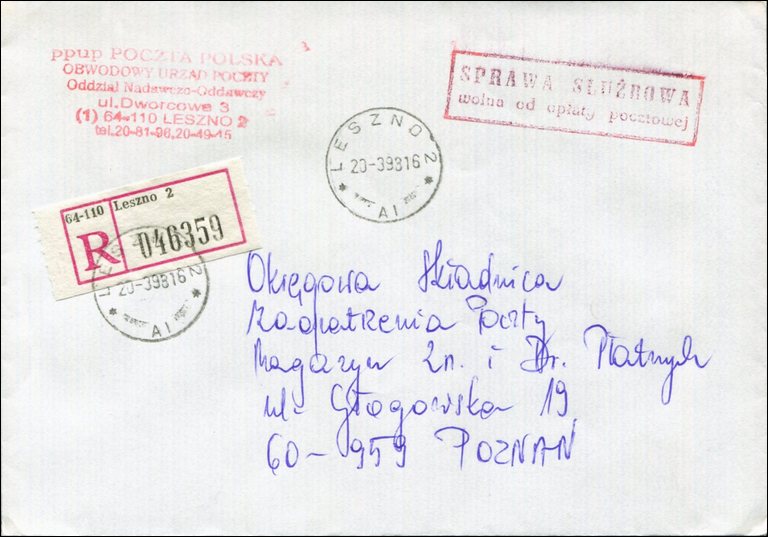 ppup POCZTA POLSKA
OBWODOWY URZĄD POCZTY
Oddział Nadawczo-Oddawczy
ul. Dworcowa 3
(1) 64-110 LESZNO 2
tel. 20-81-96, 20-49-15
SPRAWA SŁUŻBOWA
wolna od opłaty pocztowej
LESZNO 2
20-3.9316
A1
64-110 Leszno 2
R 046359
LESZNO 2
20-3.9316
A1
Okręgowa Składnica
Zaopatrzenia Poczty
Magazyn Zn. i Dr. Płatnych
ul. Głogowska 19
60-959 POZNAŃ